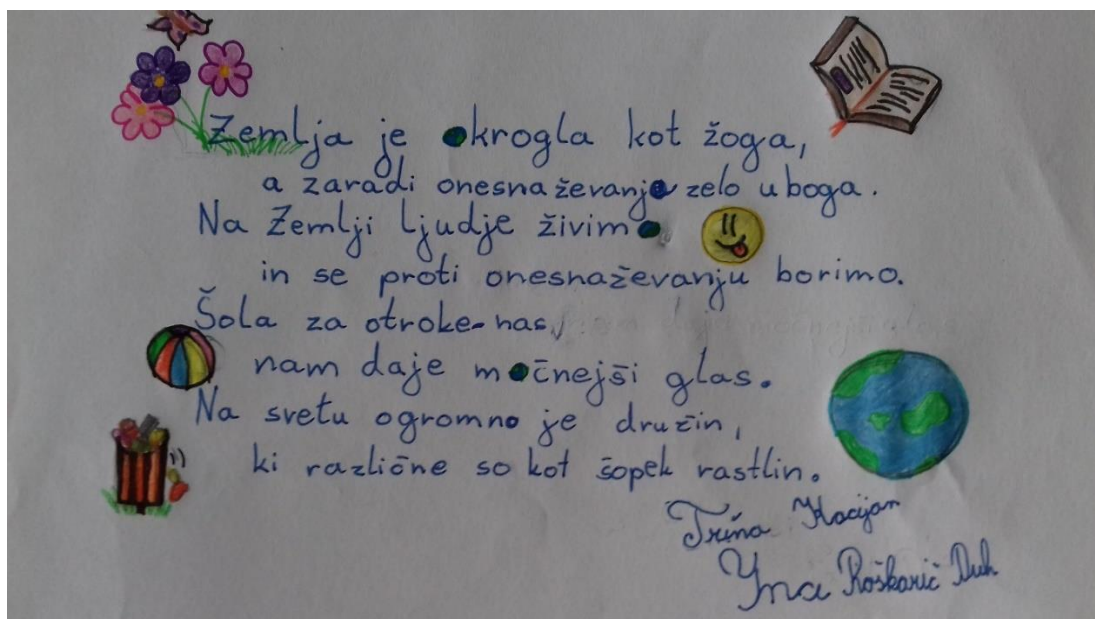 Zemlja je okrogla kot žoga,
a zaradi onesnaževanja zelo uboga.
Na Zemlji ljudje živimo
in se proti onesnaževanju borimo.
Šola za otroke-nas,
nam daje močnejši glas.
Na svetu ogromno je družin,
ki različne so kot šopek rastlin.
Trina Kocijan
Yna Roškarič Duh